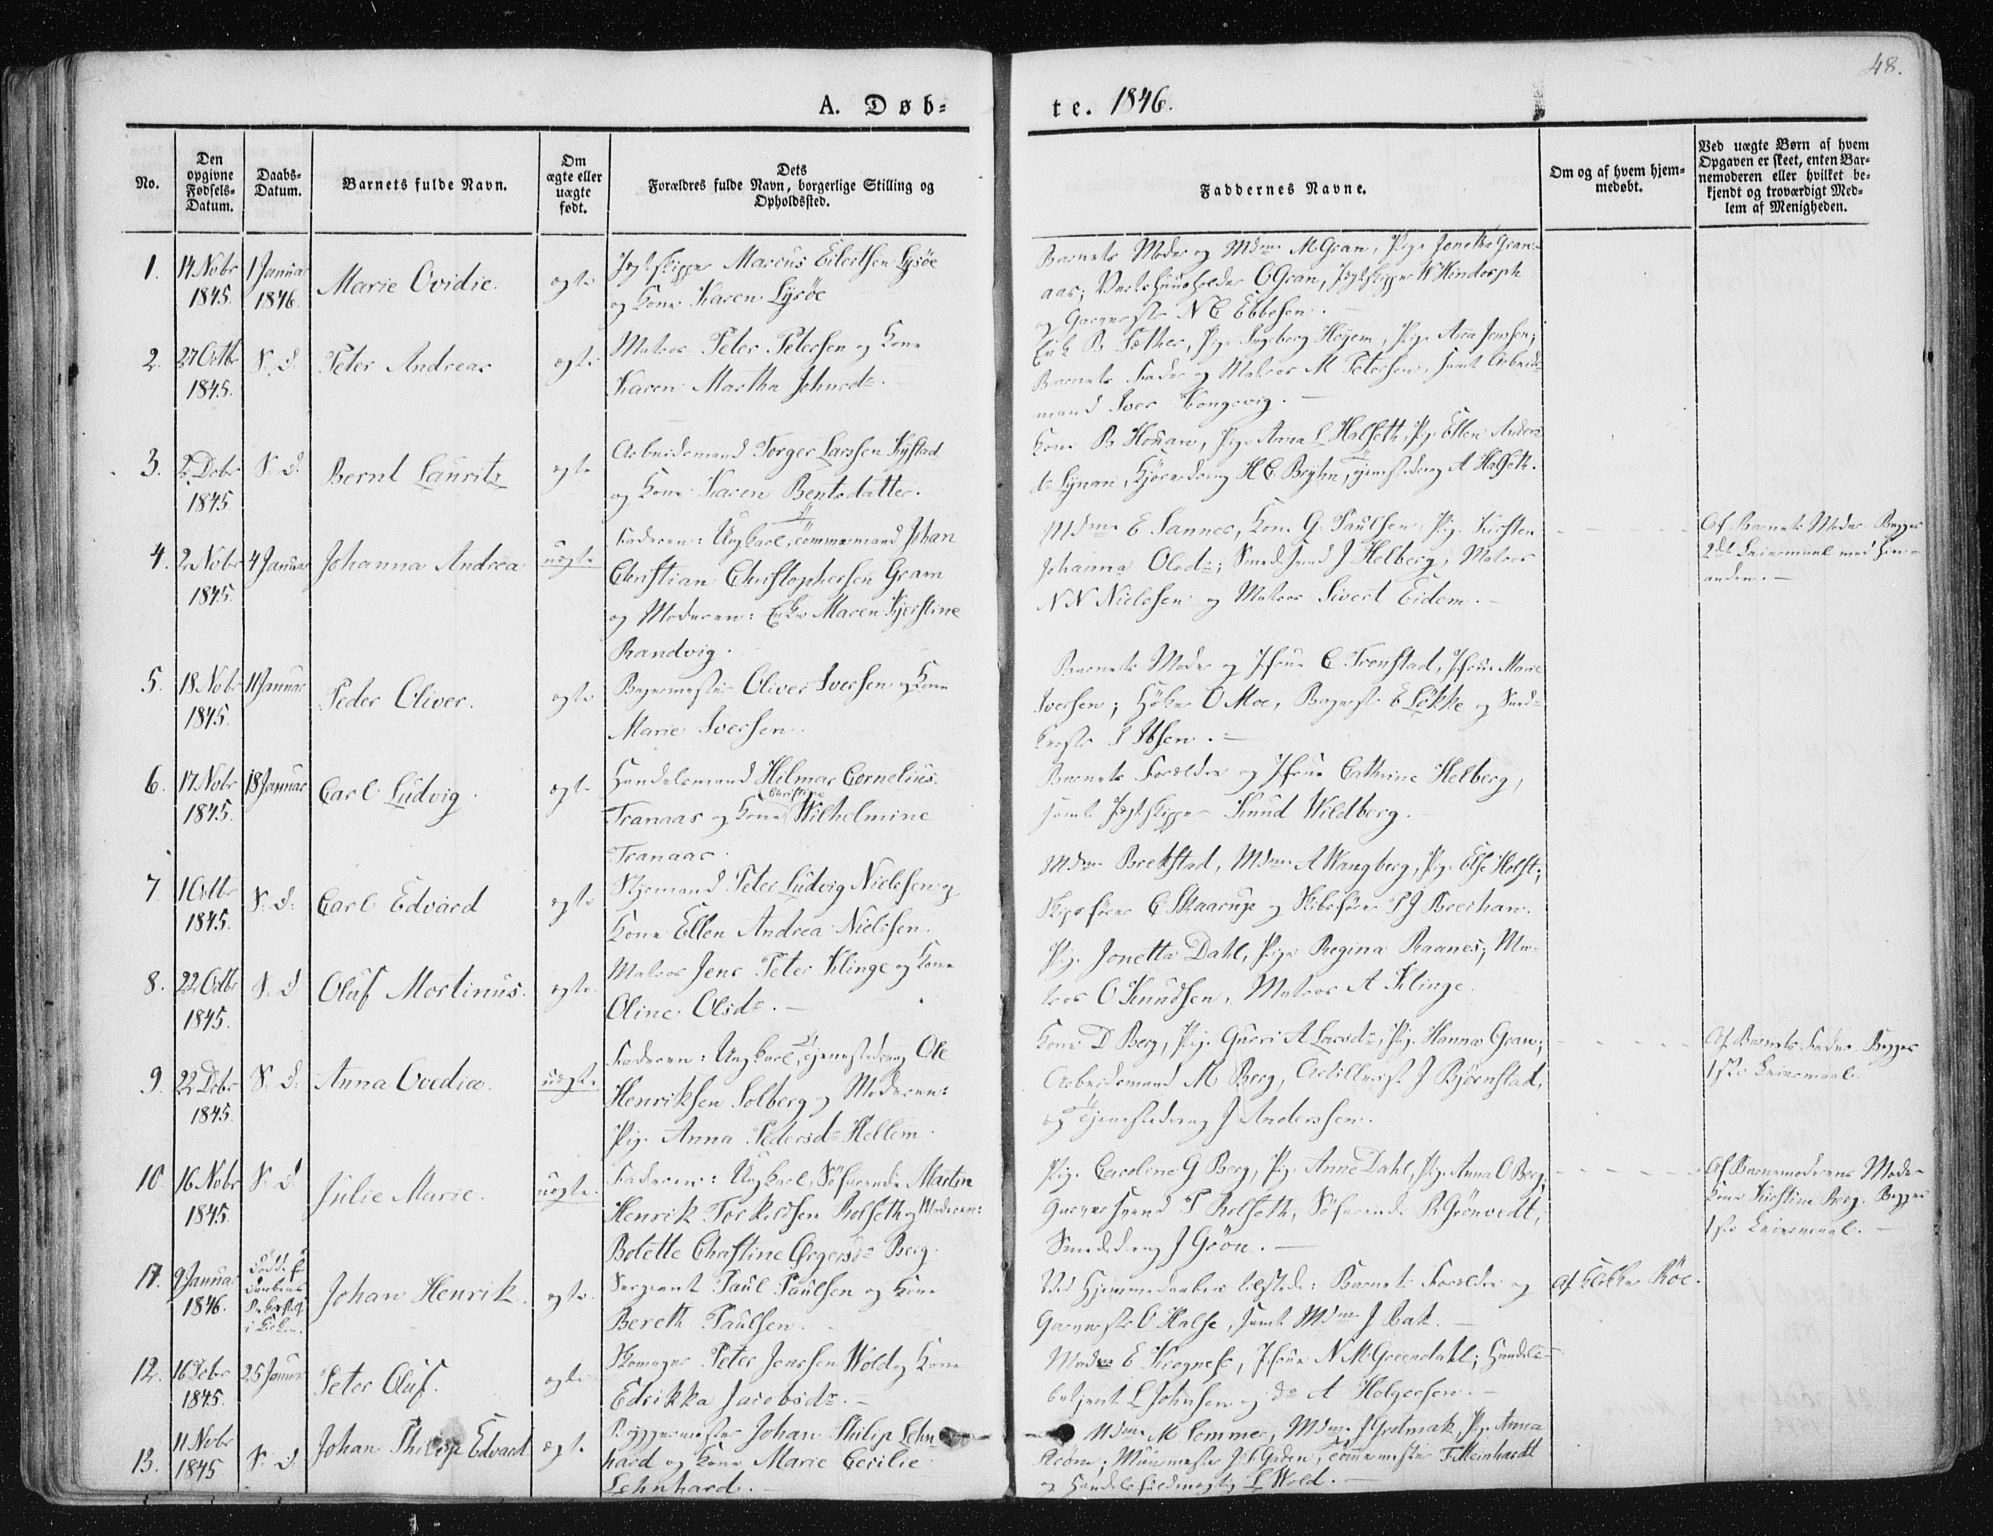 48.
A. Døb=
te. 1846.
No.
Den opgivne Fødsels-Datum.
Daabs-Datum.
Barnets fulde Navn.
Om ægte eller uægte født.
Dets Forældres fulde Navn, borgerlige Stilling og Opholdssted.
Faddernes Navne.
Om og af hvem hjemmedøbt.
Ved uægte Børn af hvem Opgaven er skeet, enten Barnemoderen eller hvilket bekjendt og troværdigt Medlem af Menigheden.
1. 14 Nobr 1845. 1 Januar 1846. Marie Ovidie. ægte
Jagtskipper Marcus Eilertsen Lysöe
og Kone Karen Lysöe
Barnets Moder og Mdme M Gran, Pige Jonetta Gran-
aas; Værtshuusholder O Gran, Jagtskipper W Hindorph
og Garversv N C Ebbesen.
2. 27 Octbr 1845. S. d. Peter Andreas ægte
Matros Peter Petersen og Kone
Karen Martha Johnsd.
Enk B Sæther, Pige Ingberg Høyem, Pige Anna Jensen;
Barnets Fader og Matros M Petersen, samt Arbeids-
mand Iver Kongsvig.
3. 5 Debr 1845. S. d. Bernt Lauritz ægte
Arbeidsmand Torger Larssen Kystad
og Kone Karen Bentsdatter.
Kone B Houan, Pige Anna L Halseth, Pige Ellen Anders
d. Lynan, Kjøredreng H C Bryhn, Tjenestedreng A Halseth.
4. 2 Nobr 1845. 4 Januar Johanna Andrea uægte
Faderen: Ungkarl, Tömmermand Johan
Christian Christophersen Gram
og Moderen: Enke Maren Kjerstine
Randvig.
Mdme E Sannes, Kone G Paulsen, Pige Kirsten
Johanna Olsd; Smedsvend J Helberg, Matros
N N Nielssen og Matros Sivert Eidem.
Af Barnets Moder. Begges
2det Leiermaal med hin-
anden.
5. 18 Nobr 1845. 11 Januar Peder Oliver. ægte
Bagermester Oliver Iversen og Kone
Marie Iversen.
Barnets Moder og Jfrue C Trønstad, Jfrue Marie
Iversen; Höker O Moe, Bagersv E Lökke og Smed-
Ibsen.
6. 17 Nobr 1845. 18 Januar Carl Ludvig. ægte
Handelsmand Hilmar Cornelius
Tranaas og Kone Christine Wilhelmine
Tranaas.
Barnets Forældre og Jfrue Cathrine Helberg,
samt Jagtskipper Knud Wildberg.
7. 1 Octbr 1845. S. d. Carl Edvard ægte
Styrmand Peter Ludvig Nielssen og
Kone Ellen Andrea Nielssen.
Mdme Brekstad, Mdme A Wangberg, Pige Else Holst;
Skipsfører C Skaarup og Skibsfører P J Beerhan.
8. 22 Octbr 1845. S. d. Oluf Mortinus. ægte
Matros Jens Peter Klinge og Kone
Oline Olsd.
Pige Jonetta Dahl, Pige Regina Raanes; Ma-
tros O Knudsen, Matros A Klinge.
9. 22 Debr 1845. S. d. Anna Ovedia. uægte
Faderen: Ungkarl, Tjenestedreng Ole
Henriksen Solberg og Moderen:
Pige Anna Pedersd Hellem.
Kone D Berg, Pige Guri A Larsd, Pige Hanna Gran;
Arbeidsmand M Berg, Artillerist J Bjørnstad,
og Tjenestedreng J Anderssen.
Af Barnets Fader. Begges
1ste Leiermaal.
10. 16 Nobr 1845. S. d. Julie Marie. uægte.
Faderen: Ungkarl, Söfarende Martin
Henrik Torkildsen Rolseth og Moderen:
Bolette Christine Örgersd Berg.
Pige Caroline G Berg, Pige Anne Dahl, Pige Anna O Berg;
Garversvend P Rolseth, Söfarende R Grönvedt,
Smededreng J Grön.
Af Barnemoderens Moder
Kone Kirstine Berg. Begges
1ste Leiermaal.
11. 9 Januar 1846. Johan Henrik. ægte.
Sergeant Paul Paulsen og Kone
Bereth Paulsen.
Ved Hjemmedaaben tilstede: Barnets Forældre og
Garversv O Halse, samt Mdme J Bak.
Af Klokker Röe.
12. 16 Debr 1845. 25 Januar Peter Oluf. ægte
Skomager Peter Jenssen Wold og Kone
Edrikka Jacobsd.
Mdme E Krogness, Jfrue N M Greendahl; Handels-
betjent L Johnsen og do A Holgersen.
13. 11 Nobr 1845 S. d. Johan Philip Edvard ægte
Byggemester Johan Philip Lehn-
hard og Kone Marie Cecilie
Lehnhard.
Mdme M Lemmer, Mdme Grotmak, Pige Anna
Kröne; Muurmester J L Gaden, Tömmermester F Meinhardt
og Handelsfuldmægtig L Wold.